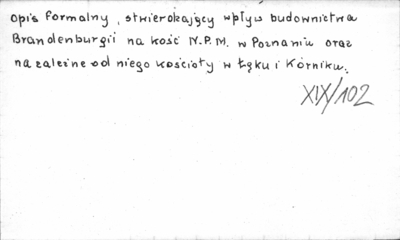 opis formalny, stwierdzający wpływ budownictwa
Brandenburgii na kość N.P.M. w Poznaniu oraz
na zależne od niego kościoły w Łęku i Kórniku.
XIX/102